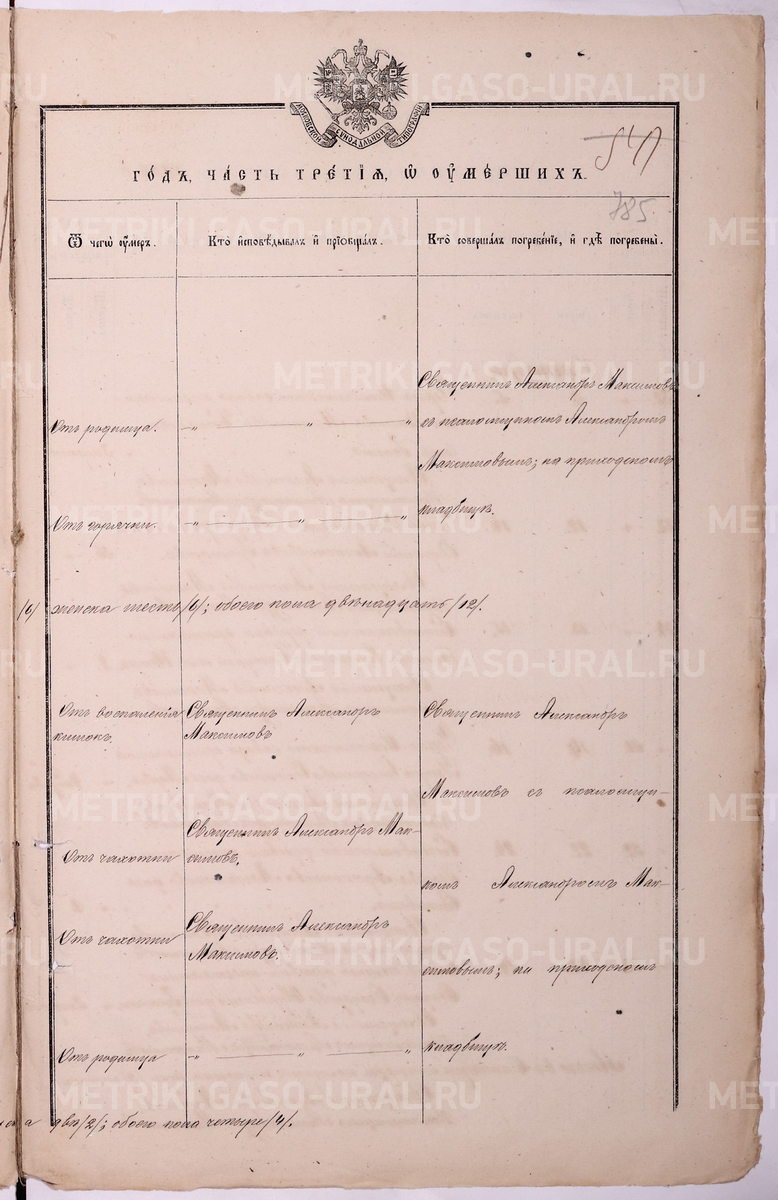 МОСКОВСКОЙ СѴНОДАЛЬНОЙ ТИПОГРАФІИ
547
ГО́ДЪ, ЧА́СТЬ ТРЕ́ТІЯ, Ѡ҆ ОУ҆МЕ́РШИХЪ.
785.
Ѿ чегѡ̀ оу҆́меръ.
Кто̀ и҆сповѣ́дывалъ и҆ прїѡбща́лъ.
Кто̀ соверша́лъ погребе́нїе, и҆ гдѣ̀ погребены̀.
Священникъ Александръ Максимовъ
Отъ родимца. —„ — „ — „
съ псаломщикомъ Александромъ
Максимовымъ; на приходскомъ
Отъ горячки. —„ — „ — „
кладбищѣ.
/6/ женска шесть /6/; обоего пола двѣнадцать /12/.
Отъ воспаленія
кишокъ.
Священникъ Александръ
Максимовъ
Священникъ Александръ
Максимовъ съ псаломщи-
Священникъ Александръ Мак-
симовъ.
Отъ чахотки
комъ Александромъ Мак-
Отъ чахотки
Священникъ Александръ
Максимовъ.
симовымъ; на приходскомъ
Отъ родимца —„ — „ — „
кладбищѣ.
два /2/; обоего пола четыре /4/.
METRIKI.GASO-URAL.RU